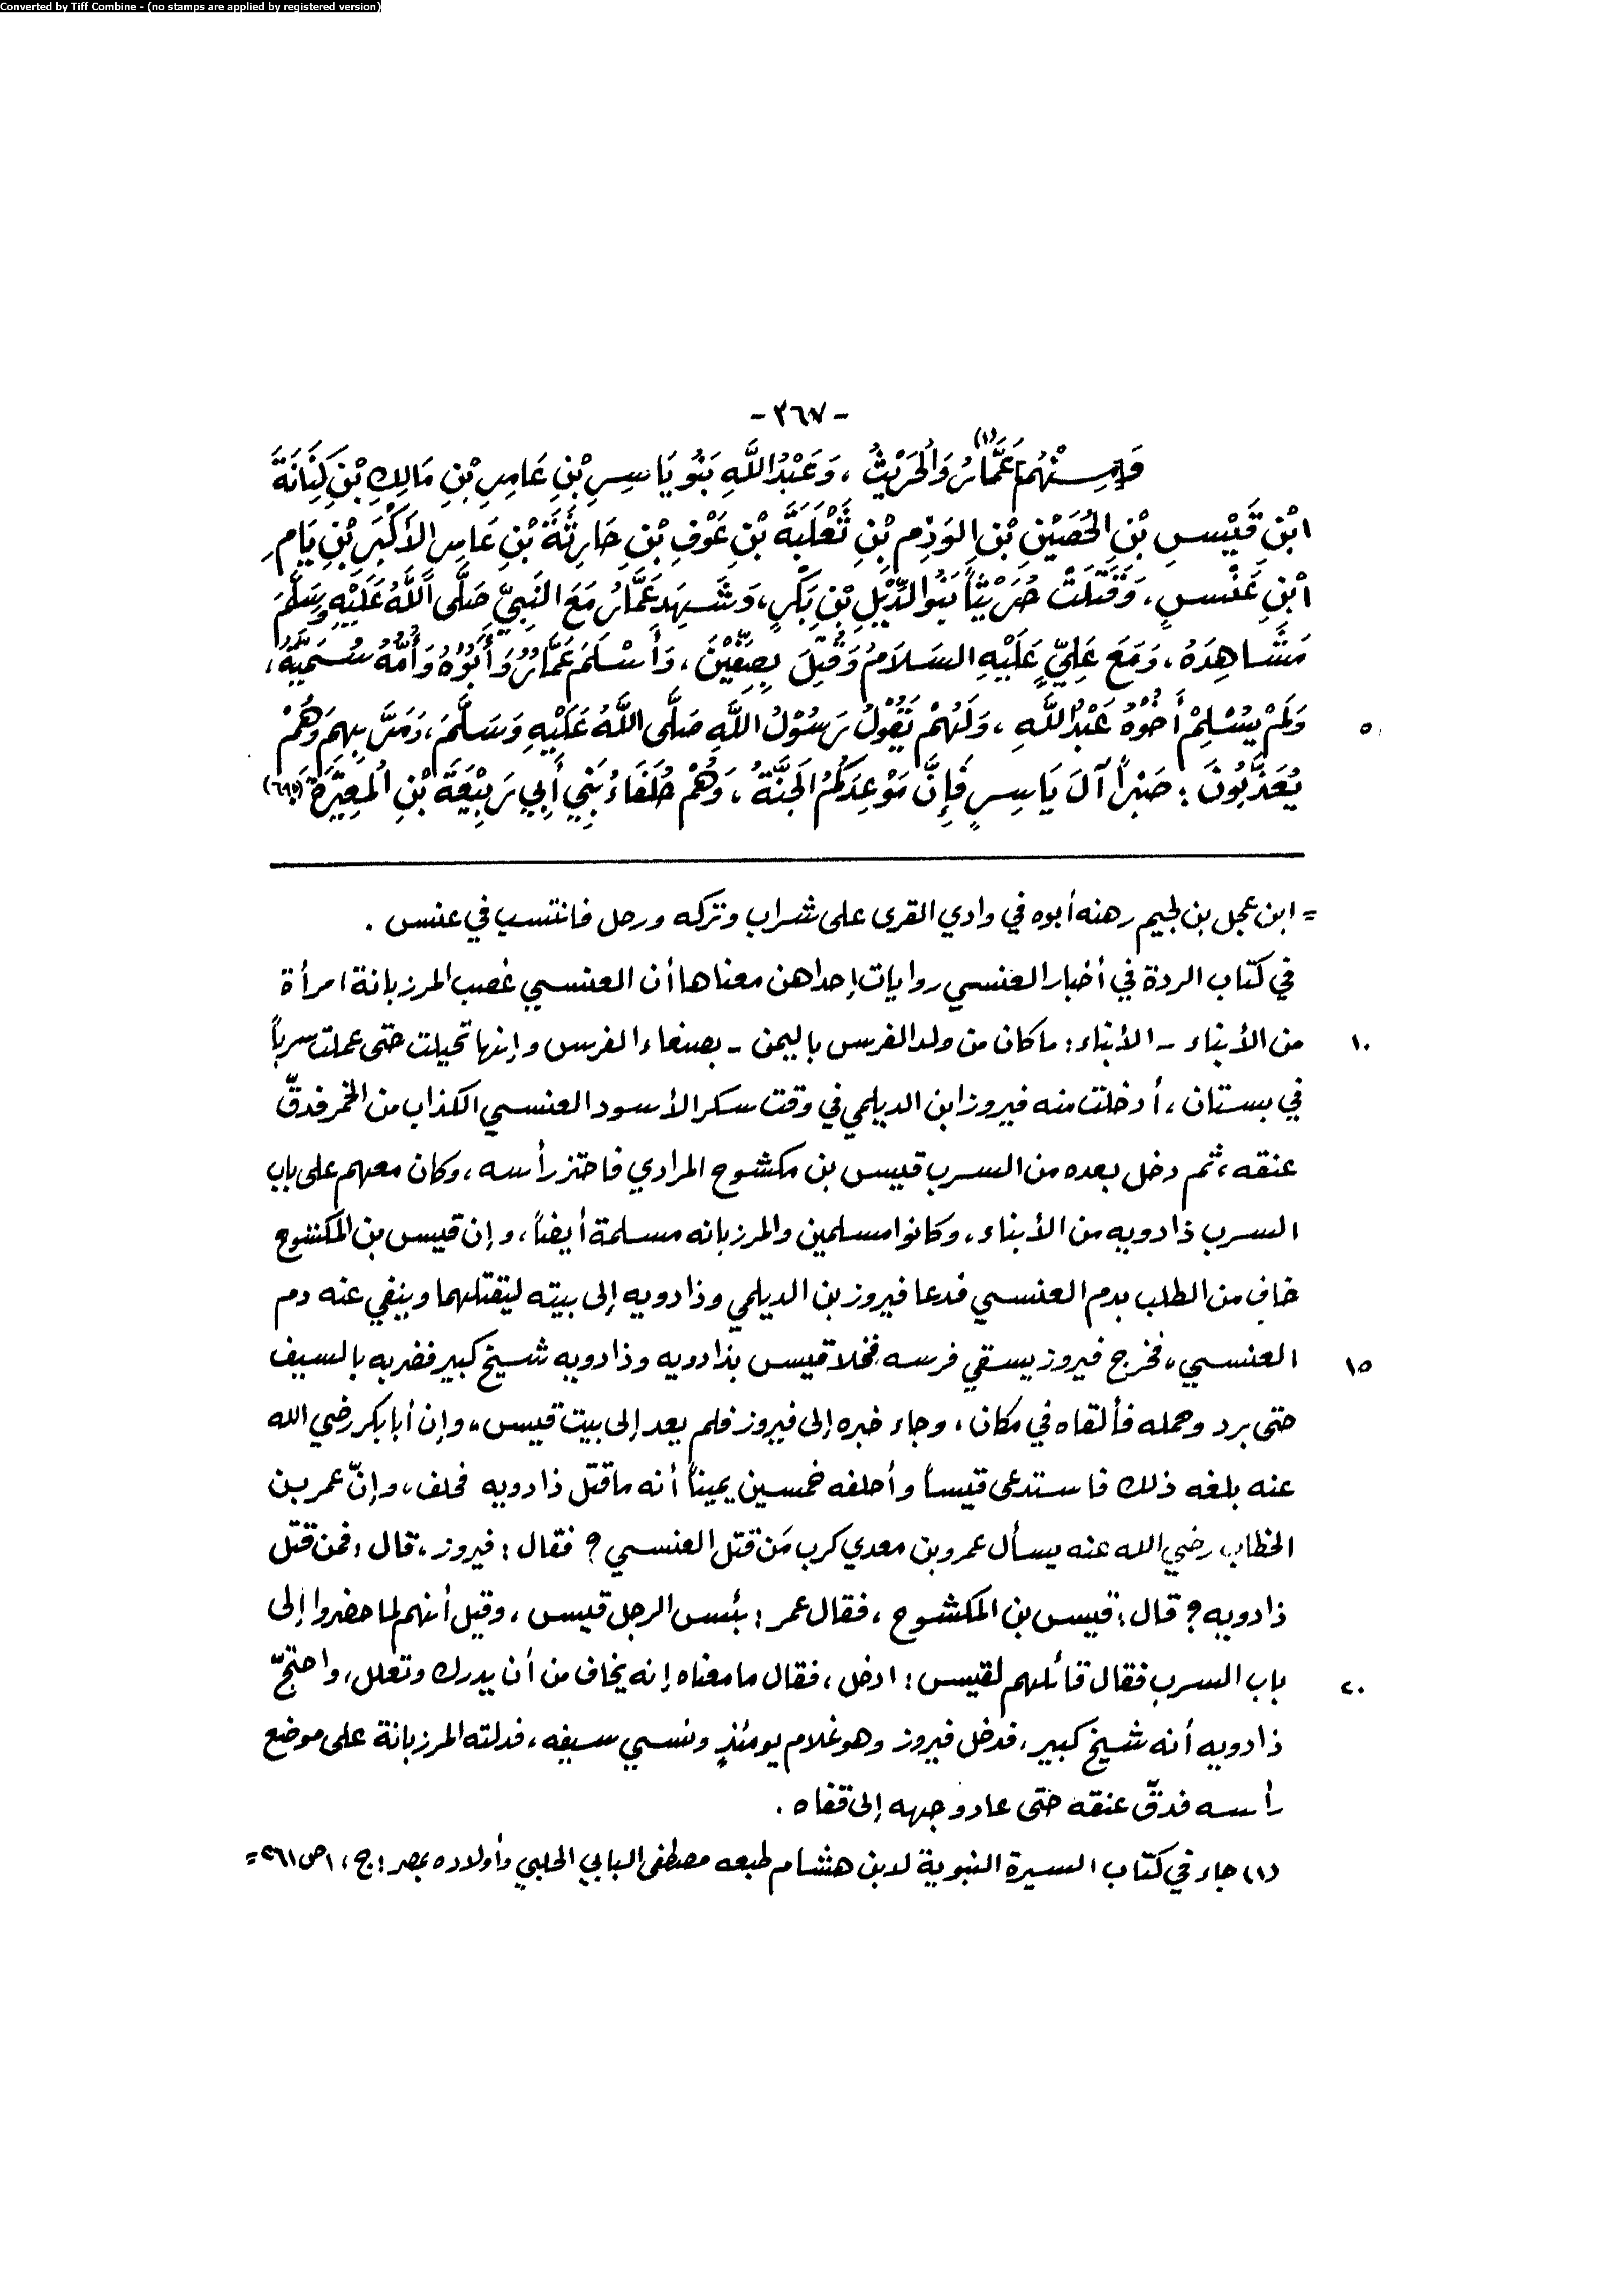 Converted by Tiff Combine - (no stamps are applied by registered version)
- ٣٦٧ -
وَمِنْهُمْ عَمَّارُ(١) وَالحُرَيْثُ ، وَعَبْدُ اللَّهِ بَنُو يَاسِرِ بْنِ عَامِرِ بْنِ مَالِكِ بْنِ كِنَانَةَ
ابْنِ قَيْسِ بْنِ الحُصَيْنِ بْنِ الوَذِمِ بْنِ ثَعْلَبَةَ بْنِ عَوْفِ بْنِ حَارِثَةَ بْنِ عَامِرِ الأَكْبَرِ بْنِ يَامِ
ابْنِ عَنْسٍ ، وَقَتَلَتْ حُرَيْثاً بَنُو الدِّيْلِ بْنِ بَكْرٍ ، وَشَهِدَ عَمَّارُ مَعَ النَّبِيِّ صَلَّى اللَّهُ عَلَيْهِ وَسَلَّمَ
مَشَاهِدَهُ ، وَمَعَ عَلِيٍّ عَلَيْهِ السَلَامُ وَقُتِلَ بِصِفِّيْنَ ، وَأَسْلَمَ عَمَّارُ وَأَبُوْهُ وَأُمُّهُ سُمَيَّةُ ،
٥ وَلَمْ يُسْلِمْ أَخُوْهُ عَبْدُ اللَّهِ ، وَلَهُمْ يَقُوْلُ رَسُوْلُ اللَّهِ صَلَّى اللَّهُ عَلَيْهِ وَسَلَّمَ ، وَمَرَّ بِهِمْ وَهُمْ
يُعَذَّبُونَ : صَبْراً آلَ يَاسِرٍ فَإِنَّ مَوْعِدَكُمُ الجَنَّةُ ، وَهُمْ حُلَفَاءُ بَنِي أَبِي رَبِيْعَةَ بْنِ المُغِيْرَةِ
= ابن عجل بن لجيم رهنه أبوه في وادي القرى على شراب وتركه ورحل فانتسب في عنس .
في كتاب الردة في أخبار العنسي روايات إحداهن معناها أن العنسي غصب المرزبانة امرأة
١٠ من الأبناء - الأبناء : ما كان من ولد الفرس باليمن - بصنعاء الفرس وإنها تحيلت حتى عملت سرباً
في بستان ، أدخلت منه فيروز ابن الديلمي في وقت سكر الأسود العنسي الكذاب من الخمر فدقّ
عنقه ، ثم دخل بعده من السرب قيس بن مكشوح المرادي فاحتز رأسه ، وكان معهم على باب
السرب ذادويه من الأبناء ، وكانوا مسلمين والمرزبانه مسلمة أيضاً ، وإن قيس بن المكشوح
خاف من الطلب بدم العنسي فدعا فيروز بن الديلمي وذادويه إلى بيته ليقتلهما وينفي عنه دم
١٥ العنسي ، فخرج فيروز يسقي فرسه فخلا قيس بذادويه وذادويه شيخ كبير فضربه بالسيف
حتى برد وحمله فألقاه في مكان ، وجاء خبره إلى فيروز فلم يعد إلى بيت قيس ، وإن أبا بكر رضي الله
عنه بلغه ذلك فاستدعى قيساً وأحلفه خمسين يميناً أنه ما قتل ذادويه فحلف ، وإنّ عمر بن
الخطاب رضي الله عنه يسأل عمرو بن معدي كرب مَن قتل العنسي ؟ فقال : فيروز ، قال : فمن قتل
ذادويه ؟ قال : قيس بن المكشوح ، فقال عمر : بئس الرجل قيس ، وقيل أنهم لما حضروا إلى
٢٠ باب السرب فقال قائلهم لقيس : ادخل ، فقال ما معناه إنه يخاف من أن يدرك وتعلل ، واحتجّ
ذادويه أنه شيخ كبير ، فدخل فيروز وهو غلام يومئذٍ ونسي سيفه ، فدلته المرزبانة على موضع
رأسه فدقّ عنقه حتى عاد وجهه إلى قفاه .
(١) جاء في كتاب السيرة النبوية لابن هشام طبعه مصطفى البابي الحلبي وأولاده بمصر : ج ، ١ ص ٢٦١ =